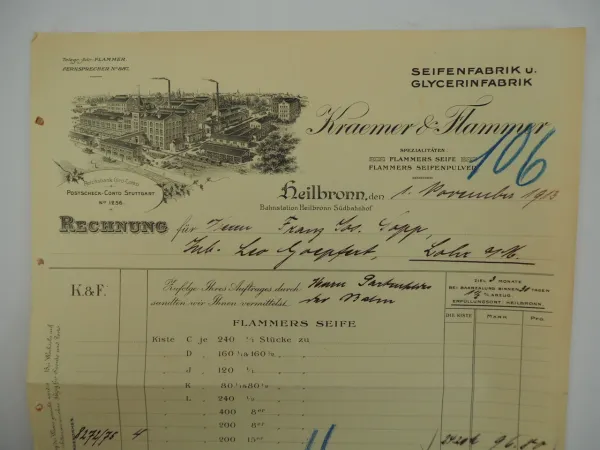 Telegr. Adr.: FLAMMER.
FERNSPRECHER No 647.
SEIFENFABRIK u.
GLYCERINFABRIK
Kraemer & Flammer
SPEZIALITÄTEN:
FLAMMERS SEIFE
FLAMMERS SEIFENPULVER
106
Reichsbank Giro Conto
POSTSCHECK-CONTO STUTTGART
No 1256.
Heilbronn, den 1. November 1913
Bahnstation Heilbronn Südbahnhof
RECHNUNG für Herrn Franz Jos. Sopp,
Inh. Leo Goepfert, Lohr a/M.
K. & F.
Zufolge Ihres Auftrages durch Herrn
sandten wir Ihnen vermittelst der Bahn
ZIEL 3 MONATE
BEI BAARZAHLUNG BINNEN 30 TAGEN
ERFÜLLUNGSORT: HEILBRONN.
DIE KISTE MARK PFG.
FLAMMERS SEIFE
Kiste C je 240 1/1 Stücke zu
D 160 1/1 à 160 1/2
J 120 1/1
K 80 1/1 à 80 1/2
L 240 1/2
400 8er
200 6er
8272/75 4 200 15er 2420 96.80